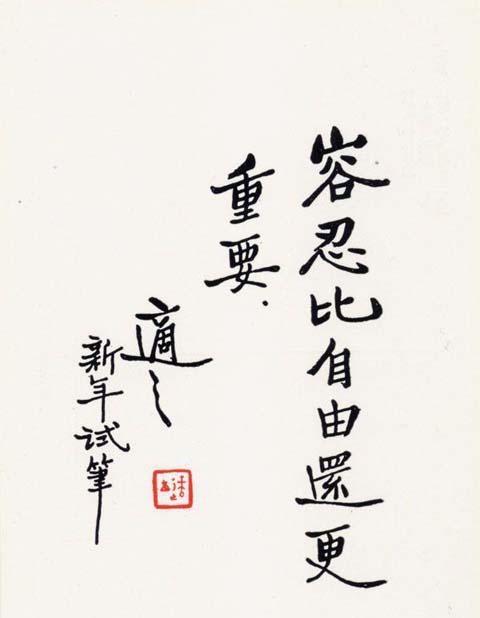 容忍比自由還更
重要.
適之
新年试筆